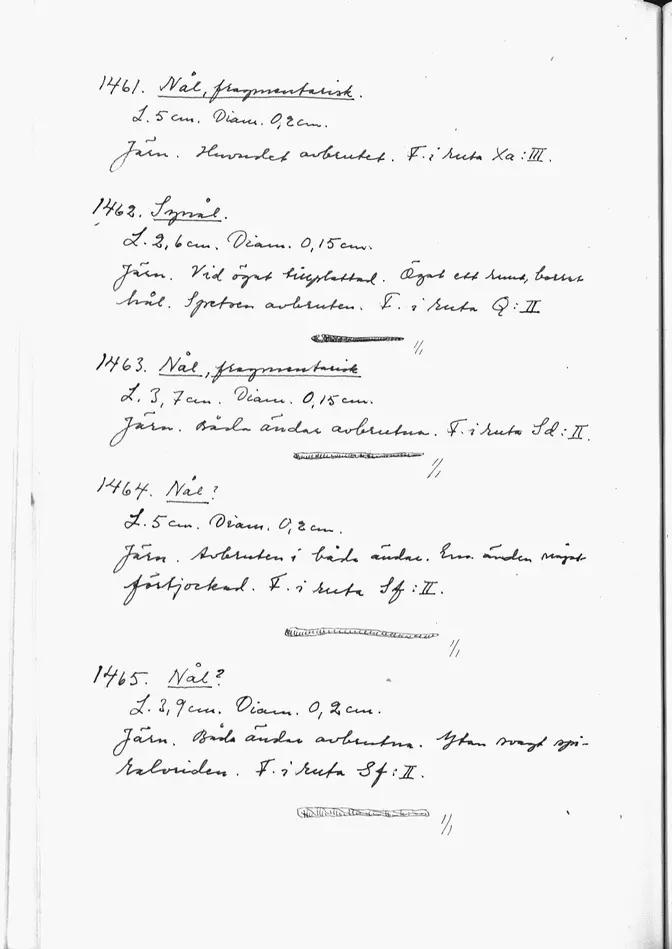 1461. Nål, fragmentarisk.
L. 5 cm. Diam. 0,2 cm.
Järn. Huvudet avbrutet. F. i ruta Xa:III.
1462. Synål.
L. 2,6 cm. Diam. 0,15 cm.
Järn. Vid ögat tillplattad. Ögat ett runt, borrat
hål. Spetsen avbruten. F. i ruta Q:II
1/1
1463. Nål, fragmentarisk
L. 3,7 cm. Diam. 0,15 cm.
Järn. Båda ändar avbrutna. F. i ruta Sd:II.
1/1
1464. Nål?
L. 5 cm. Diam. 0,2 cm.
Järn. Avbruten i båda ändar. Ena änden något
förtjockad. F. i ruta Sf:II.
1/1
1465. Nål?
L. 3,9 cm. Diam. 0,2 cm.
Järn. Båda ändar avbrutna. Ytan svagt spi-
ralvriden. F. i ruta Sf:II.
1/1